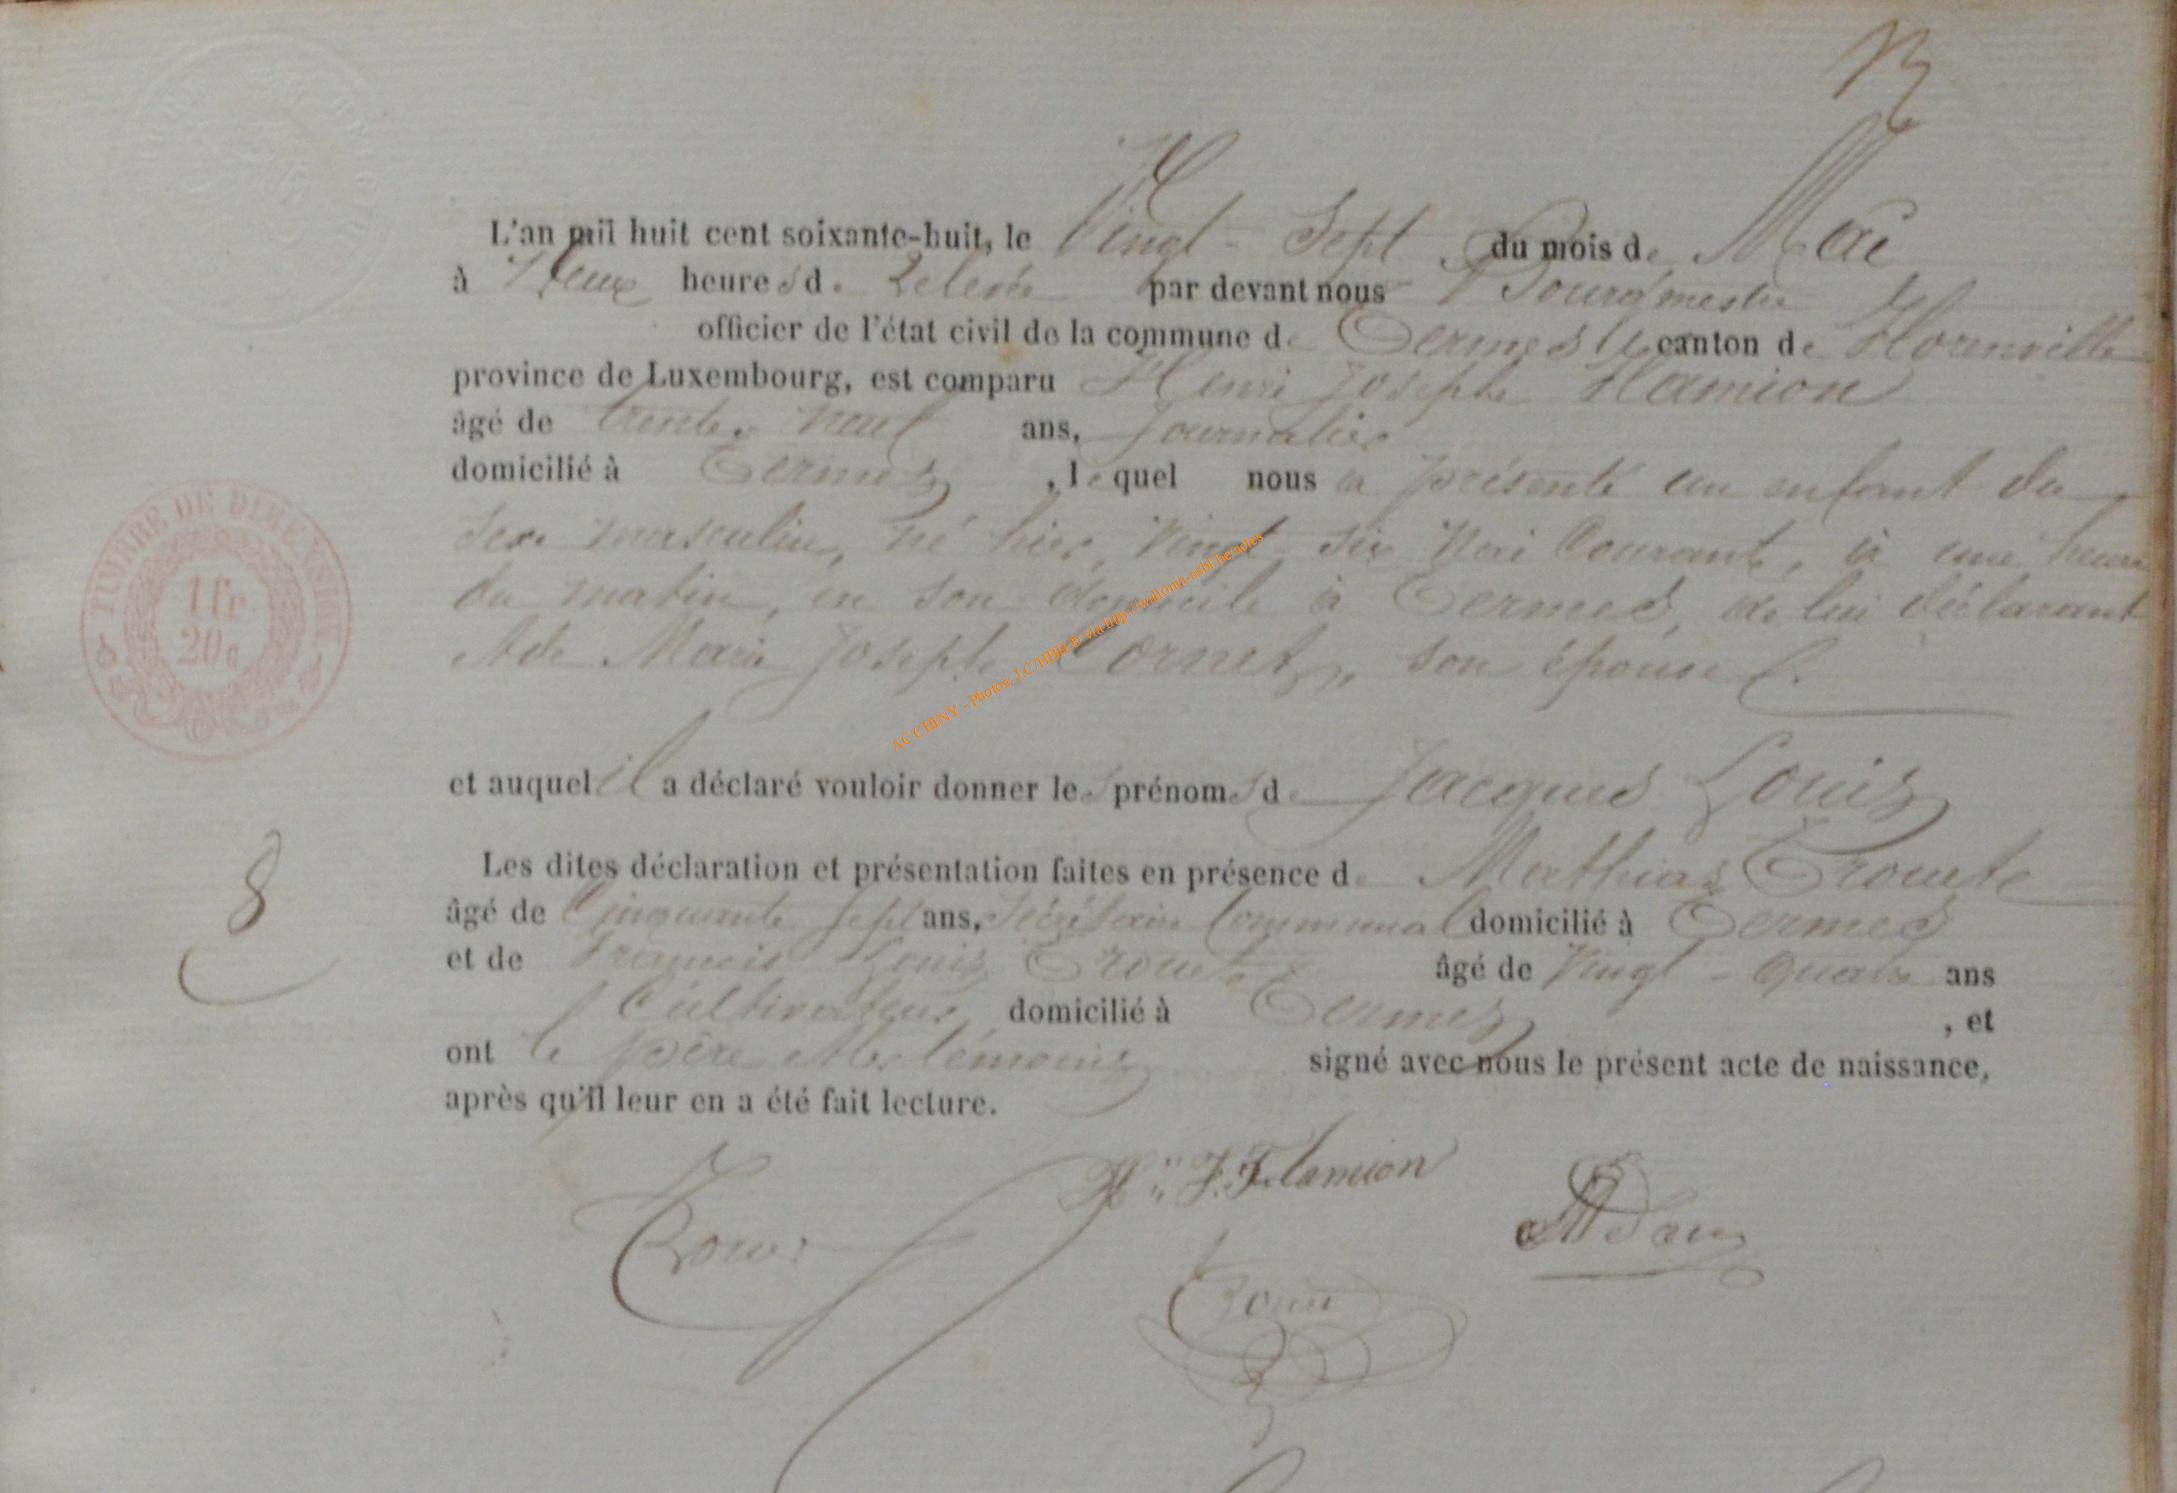 L'an mil huit cent soixante-huit, le Vingt-Sept du mois de Mai
à Deux heures de Relevée par devant nous Bourgmestre
officier de l'état civil de la commune de Termes canton de Florenville
province de Luxembourg, est comparu Henri Joseph Flamion
âgé de trente neuf ans, Journalier
domicilié à Termes, lequel nous a présenté un enfant du
sexe masculin, né hier, Vingt six Mai Courant, à une heure
du matin, en son domicile à Termes, de lui déclarant
et de Marie Joseph Cornet, son épouse
et auquel il a déclaré vouloir donner les prénoms de Jacques Louis
Les dites déclaration et présentation faites en présence de Mathias
âgé de Cinquante Sept ans, Secrétaire Communal domicilié à Termes
et de François Louis âgé de Vingt-quatre ans
Cultivateur domicilié à Termes, et
ont le père et les témoins signé avec nous le présent acte de naissance,
après qu'il leur en a été fait lecture.
H.ri J. Flamion
Adam
8
TIMBRE DE DIMENSION
1 fr
20 c
AC CHINY - Photos J.C HBH ©